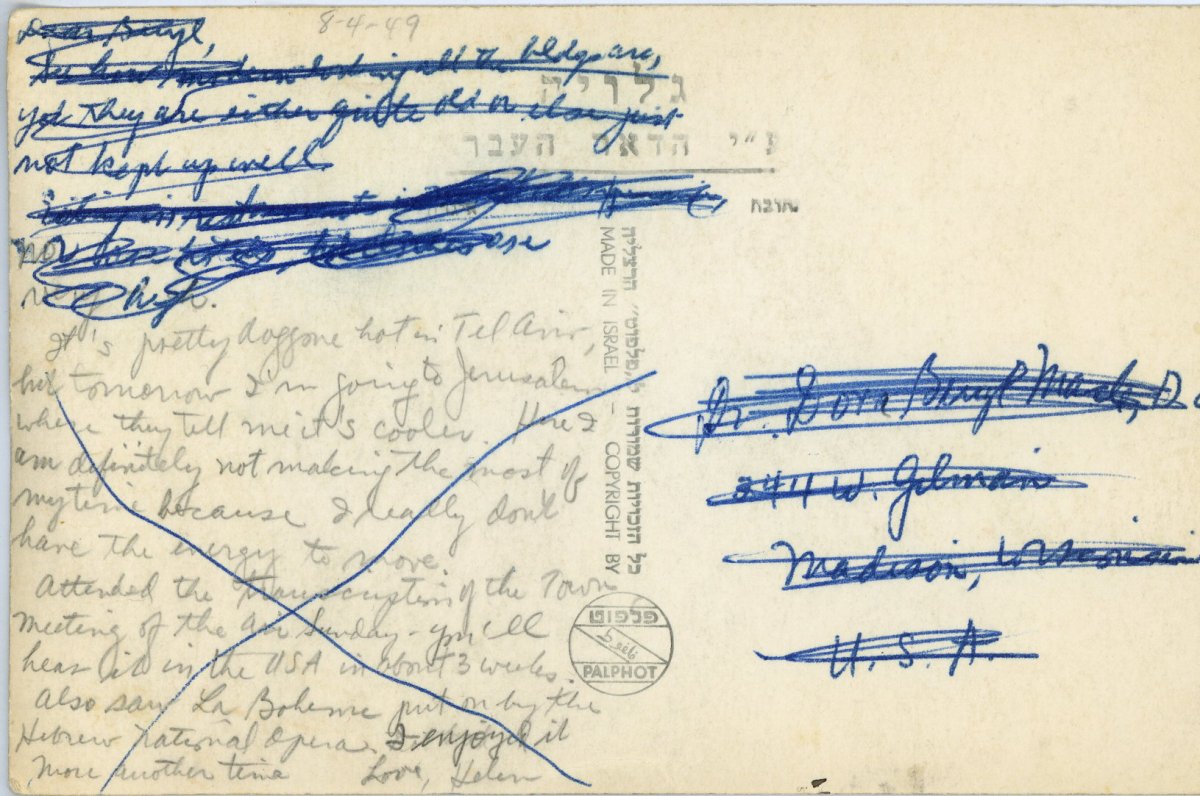 8-4-49
Dear Beryl,
See how modern looking all the bldgs are,
yet they are either quite old or else just
not kept up well
Eating in restaurants is
now
very high.
It's pretty doggone hot in Tel Aviv,
but tomorrow I'm going to Jerusalem
where they tell me it's cooler. Here I
am definitely not making the most of
my time because I really don't
have the energy to move.
Attended the transcription of the Town
Meeting of the Air Sunday - you'll
hear it in the USA in about 3 weeks.
Also saw La Boheme put on by the
Hebrew National Opera. I enjoyed it
More another time Love, Helen
גלויה
ע"י הדאר העבר
כל הזכויות שמורות
MADE IN ISRAEL - COPYRIGHT BY
פלפוט
PALPHOT
Dr. Dora Beryl
W. Gilman
Madison, Wisconsin
U. S. A.